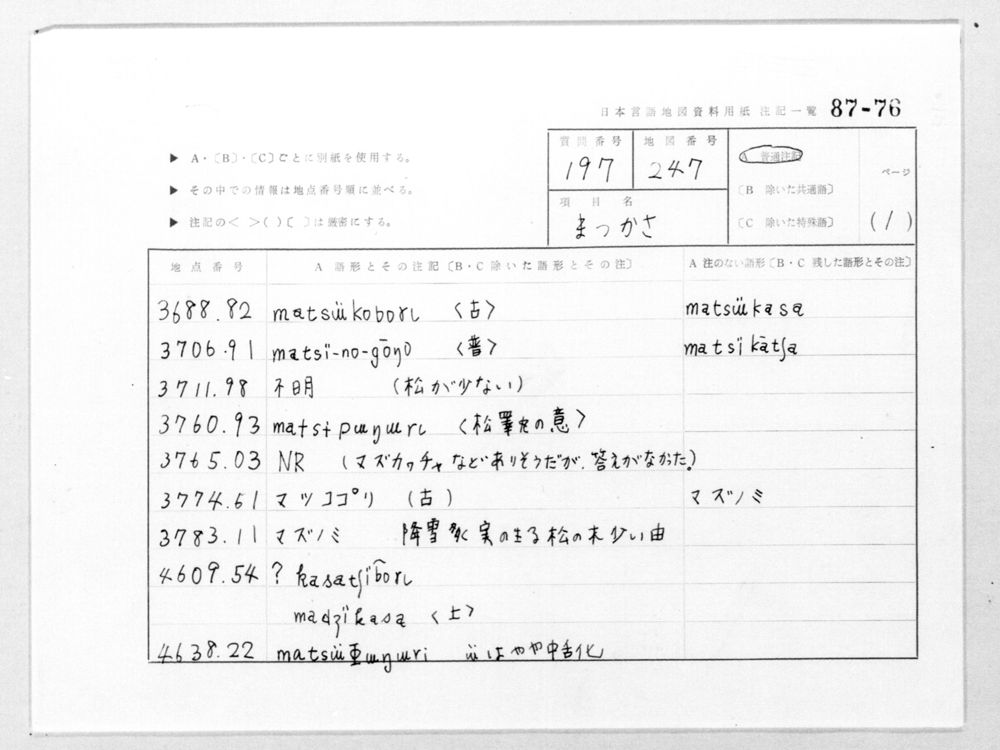 日本言語地図資料用紙 注記一覧 87-76
▶ A・〔B〕・〔C〕ごとに別紙を使用する。
▶ その中での情報は地点番号順に並べる。
▶ 注記の< >( )〔 〕は厳密にする。
質問番号 197
地図番号 247
項目名 まつかさ
A 普通注記
〔B 除いた共通語〕
〔C 除いた特殊語〕
ページ (1)
地点番号 A 語形とその注記〔B・C除いた語形とその注〕 A 注のない語形〔B・C 残した語形とその注〕
3688.82 matsɯ̈koboɾɩ 〈古〉 matsɯ̈kasa
3706.91 matsï-no-gōŋo 〈普〉 matsïkātʃa
3711.98 不明 (松が少ない)
3760.93 matsɨpɯŋɯɾɩ 〈松睾丸の意〉
3765.03 NR (マズカッチャなどありそうだが、答えがなかった。)
3774.61 マツココ゚リ (古) マズノミ
3783.11 マズノミ 降雪多く実の生る松の木少い由
4609.54 ? kasatʃïboɾɩ
madʒïkasa 〈上〉
4638.22 ɯ̈はやや中舌化